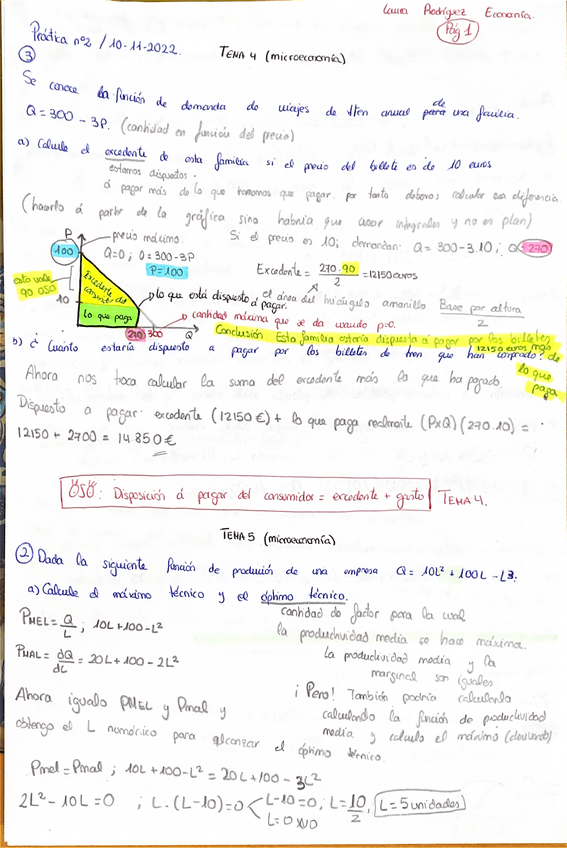 Laura Rodríguez Economía.
Pág 1
Práctica nº2 / 10-11-2022.
TEMA 4 (microeconomía)
③
Se conoce la función de demanda de viajes de tren anual de para una familia.
Q = 300 - 3P. (cantidad en función del precio)
a) Calcule el excedente de esta familia si el precio del billete es de 10 euros
estamos dispuestos
á pagar más de lo que tenemos que pagar. por tanto debemos calcular esa diferencia.
(hacerlo á partir de la gráfica sino habría que usar integrales y no es plan)
P
precio máximo.
Si el precio es 10; demandan: Q = 300-3.10; Q=270
100
Q=0; 0=300-3P
P=100
Excedente = 270.90 / 2 = 12150 euros
esto vale
90 OSO
Excedente del consumidor
lo que está dispuesto á pagar.
el área del triángulo amarillo Base por altura / 2
10
lo que paga
cantidad máxima que se da cuando p=0.
270 300
Q
Conclusión Esta familia estaría dispuesta á pagar por los billetes
12150 euros más de
lo que
paga
b) ¿Cuánto estaría dispuesto a pagar por los billetes de tren que han comprado?
Ahora nos toca calcular la suma del excedente más lo que ha pagado.
Dispuesto a pagar: excedente (12150 €) + lo que paga realmente (PxQ) (270.10) =
12150 + 2700 = 14.850 €
OSO: Disposición á pagar del consumidor = excedente + gasto
TEMA 4.
TEMA 5 (microeconomía)
② Dada la siguiente función de produción de una empresa Q = 10L² + 100L - L³.
a) Calcule el máximo técnico y el óptimo técnico.
cantidad de factor para la cual
la productividad media se hace máxima.
PMEL = Q/L ; 10L+100-L²
La productividad media y la
marginal son iguales
PMAL = dQ/dL = 20L+100-2L²
¡Pero! También podría calcularlo
calculando la función de productividad
media y calculo el máximo (derivando)
Ahora igualo PMEL y Pmal y
obtengo el L numérico para alcanzar el óptimo técnico.
Pmel = Pmal ; 10L+100-L² = 20L+100-3L²
2L² - 10L = 0 ; L.(L-10)=0
L-10=0; L=10/2, L=5 unidades
L=0 XNO